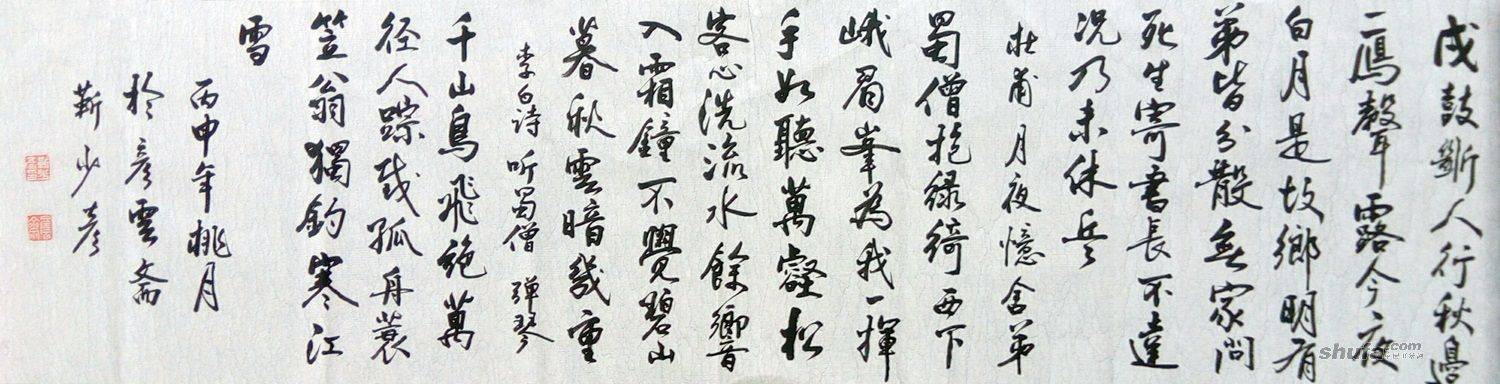 戍鼓斷人行秋邊
一鴈聲露今夜
白月是故鄉明有
弟皆分散無家問
死生寄書長不達
況乃未休兵
杜甫月夜憶舍弟
蜀僧抱綠綺西下
峨眉峯為我一揮
手如聽萬壑松
客心洗流水餘響
入霜鐘不覺碧山
暮秋雲暗幾重
李白詩听蜀僧彈琴
千山鳥飛絕萬
径人踪滅孤舟蓑
笠翁獨釣寒江
雪
丙申年桃月
於彦雲斋
靳少彦
shufa.com